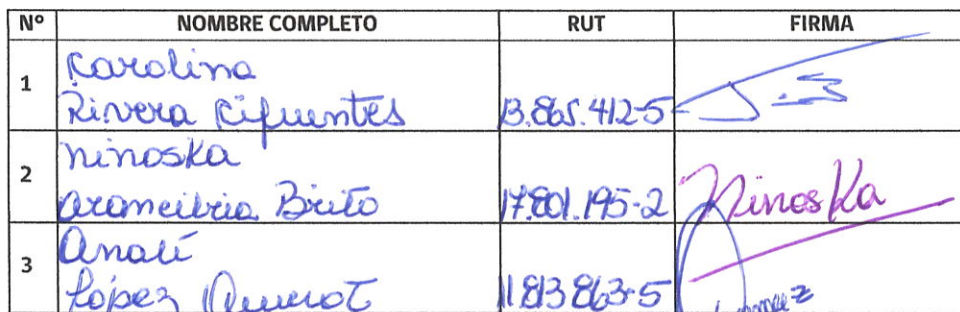 Nº NOMBRE COMPLETO RUT FIRMA
1 Carolina
Rivera Cifuentes 13.865.412-5
2 Ninoska
Arancibia Brito 17.801.195-2 Ninoska
3 Analí
López 11.813.863-5